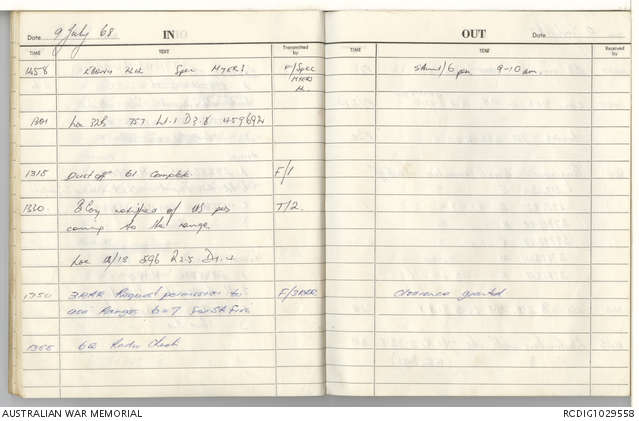 Date 9 July 68 IN
TIME TEXT Transmitted by
1258 Spec MYERS F/Spec
MYERS
1301 Loc 32B 757 L1.1 D3.8 459692
1315 Dustoff 61 Complete F/1
1320 B Coy notified of US pers T/2.
coming to the range.
Loc 896 R2.5 D1.2
1350 3RAR Request permission to F/3RAR
use Ranges 6+7 for St Fire
1355 Radio Check
OUT Date
TIME TEXT Received by
6 pm. 9-10 am.
Clearance granted
AUSTRALIAN WAR MEMORIAL
RCDIG1029558